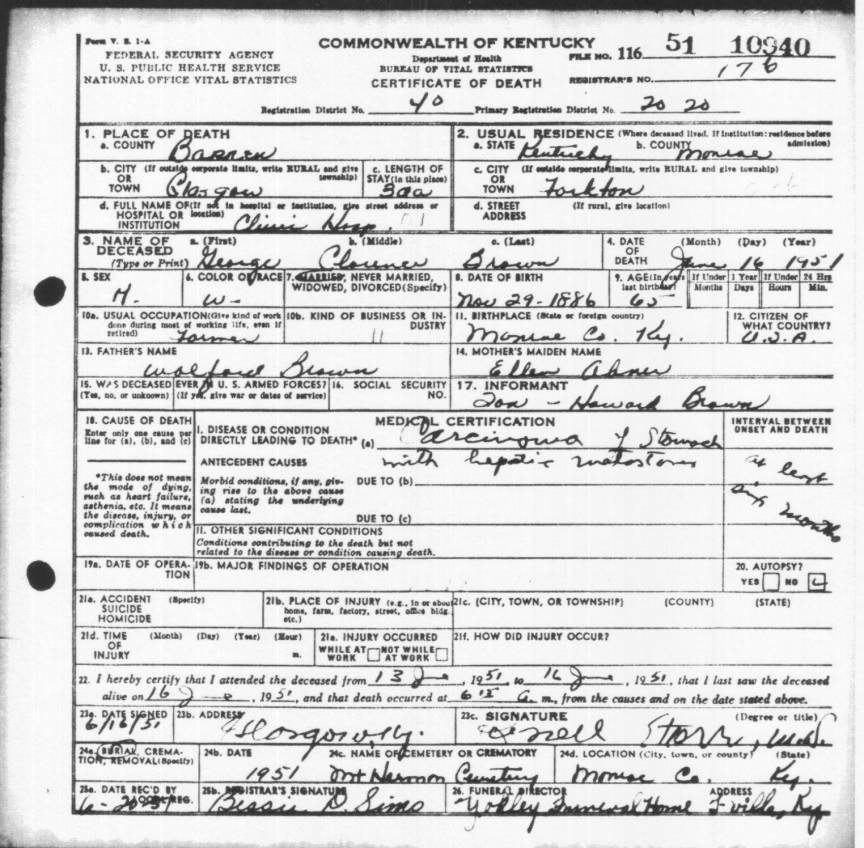 Form V. S. 1-A
FEDERAL SECURITY AGENCY
U. S. PUBLIC HEALTH SERVICE
NATIONAL OFFICE VITAL STATISTICS
COMMONWEALTH OF KENTUCKY
Department of Health
BUREAU OF VITAL STATISTICS
CERTIFICATE OF DEATH
FILE NO. 116 51 10940
REGISTRAR'S NO. 176
Registration District No. 40 Primary Registration District No. 20 20
1. PLACE OF DEATH
a. COUNTY Barren
b. CITY (If outside corporate limits, write RURAL and give township)
OR
TOWN Glasgow
c. LENGTH OF STAY (in this place)
3da
d. FULL NAME OF (If not in hospital or institution, give street address or location)
HOSPITAL OR
INSTITUTION Clinic Hosp.
2. USUAL RESIDENCE (Where deceased lived. If institution: residence before admission)
a. STATE Kentucky b. COUNTY Monroe
c. CITY (If outside corporate limits, write RURAL and give township)
OR
TOWN Forkton
d. STREET ADDRESS (If rural, give location)
3. NAME OF DECEASED
(Type or Print)
a. (First) b. (Middle) c. (Last)
George Clarence Brown
4. DATE OF DEATH (Month) (Day) (Year)
June 16 1951
5. SEX
M.
6. COLOR OR RACE
W-
7. MARRIED, NEVER MARRIED, WIDOWED, DIVORCED (Specify)
8. DATE OF BIRTH
Nov 29-1886
9. AGE (In years last birthday)
65
If Under 1 Year
Months Days
If Under 24 Hrs
Hours Min.
10a. USUAL OCCUPATION (Give kind of work done during most of working life, even if retired)
Farmer
10b. KIND OF BUSINESS OR INDUSTRY
11
11. BIRTHPLACE (State or foreign country)
Monroe Co. Ky.
12. CITIZEN OF WHAT COUNTRY?
U.S.A.
13. FATHER'S NAME
Wolford Brown
14. MOTHER'S MAIDEN NAME
Ellen
15. WAS DECEASED EVER IN U. S. ARMED FORCES?
(Yes, no, or unknown) (If yes, give war or dates of service)
16. SOCIAL SECURITY NO.
17. INFORMANT
Son - Howard Brown
18. CAUSE OF DEATH
Enter only one cause per line for (a), (b), and (c)
*This does not mean the mode of dying, such as heart failure, asthenia, etc. It means the disease, injury, or complication which caused death.
MEDICAL CERTIFICATION
I. DISEASE OR CONDITION DIRECTLY LEADING TO DEATH* (a) Carcinoma of Stomach
with hepatic metastases
ANTECEDENT CAUSES
Morbid conditions, if any, giving rise to the above cause (a) stating the underlying cause last.
DUE TO (b)
DUE TO (c)
II. OTHER SIGNIFICANT CONDITIONS
Conditions contributing to the death but not related to the disease or condition causing death.
INTERVAL BETWEEN ONSET AND DEATH
at least
six months
19a. DATE OF OPERATION
19b. MAJOR FINDINGS OF OPERATION
20. AUTOPSY?
YES NO
21a. ACCIDENT (Specify)
SUICIDE
HOMICIDE
21b. PLACE OF INJURY (e.g., in or about home, farm, factory, street, office bldg. etc.)
21c. (CITY, TOWN, OR TOWNSHIP) (COUNTY) (STATE)
21d. TIME OF INJURY (Month) (Day) (Year) (Hour) m.
21e. INJURY OCCURRED
WHILE AT WORK NOT WHILE AT WORK
21f. HOW DID INJURY OCCUR?
22. I hereby certify that I attended the deceased from 13 June, 1951, to 16 June, 1951, that I last saw the deceased
alive on 16 June, 1951, and that death occurred at 6 15 a. m., from the causes and on the date stated above.
23a. DATE SIGNED
6/16/51
23b. ADDRESS
Glasgow, Ky.
23c. SIGNATURE (Degree or title)
M.D.
24a. BURIAL, CREMATION, REMOVAL (Specify)
24b. DATE
1951
24c. NAME OF CEMETERY OR CREMATORY
Mt Hermon Cemetery
24d. LOCATION (City, town, or county) (State)
Monroe Co. Ky.
25a. DATE REC'D BY LOCAL REG.
6-20-51
25b. REGISTRAR'S SIGNATURE
Bessie D. Sims
26. FUNERAL DIRECTOR ADDRESS
Yokley Funeral Home T-ville, Ky